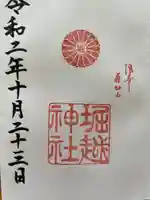 令和二年十月二十三日
堀越
神社